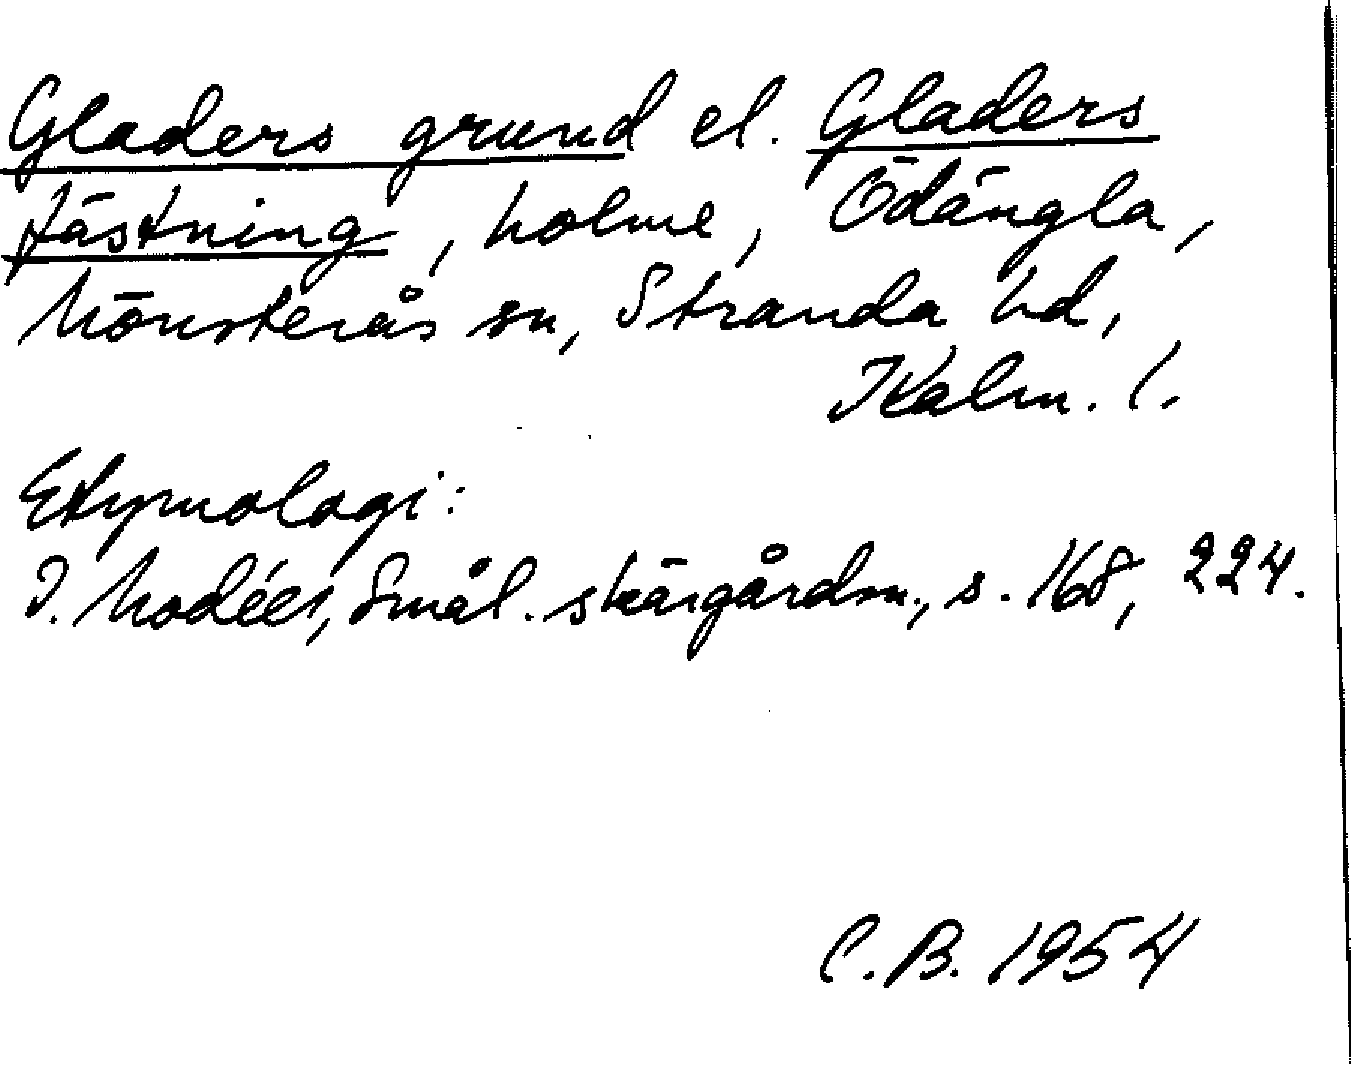 Gladers grund el. Gladers
fästning, holme, Ödängla,
Mönsterås sn, Stranda hd,
Kalm. l.
Etymologi:
I. Modéer, Smål. skärgårdsn., s. 168, 224.
C.B. 1954